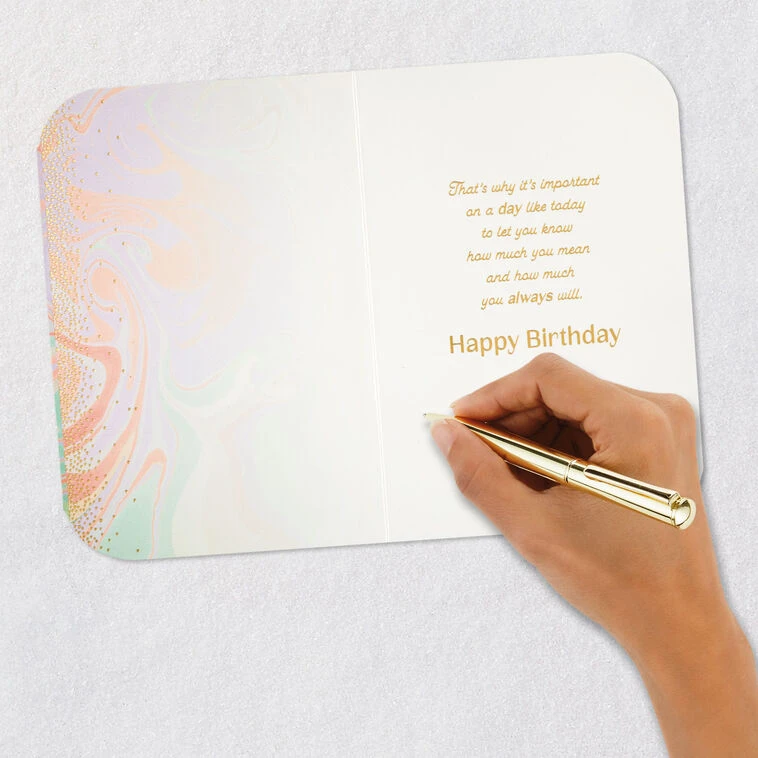 That's why it's important
on a day like today
to let you know
how much you mean
and how much
you always will.
Happy Birthday